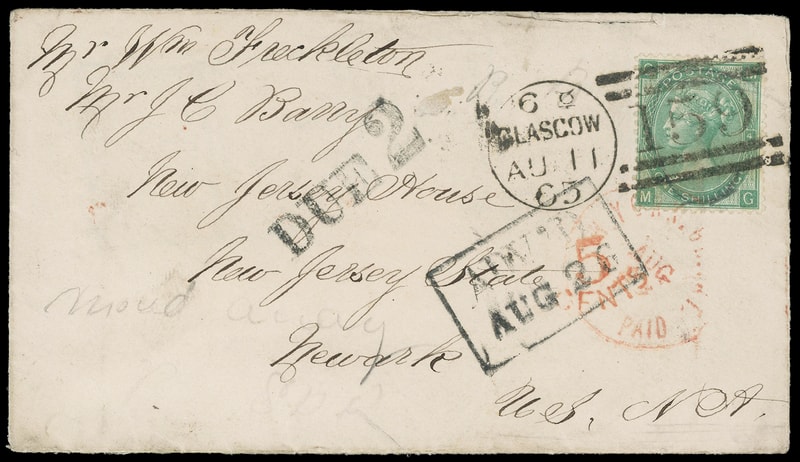 Mr Wm Freckleton
Mr J C Barry
New Jersey House
New Jersey State
Newark
U S, N A.
moved away
DUE 2
6
GLASCOW
AU 11
63
159
POSTAGE
ONE SHILLING
M G
ADVTD
AUG 26
5
CENTS
AUG
PAID